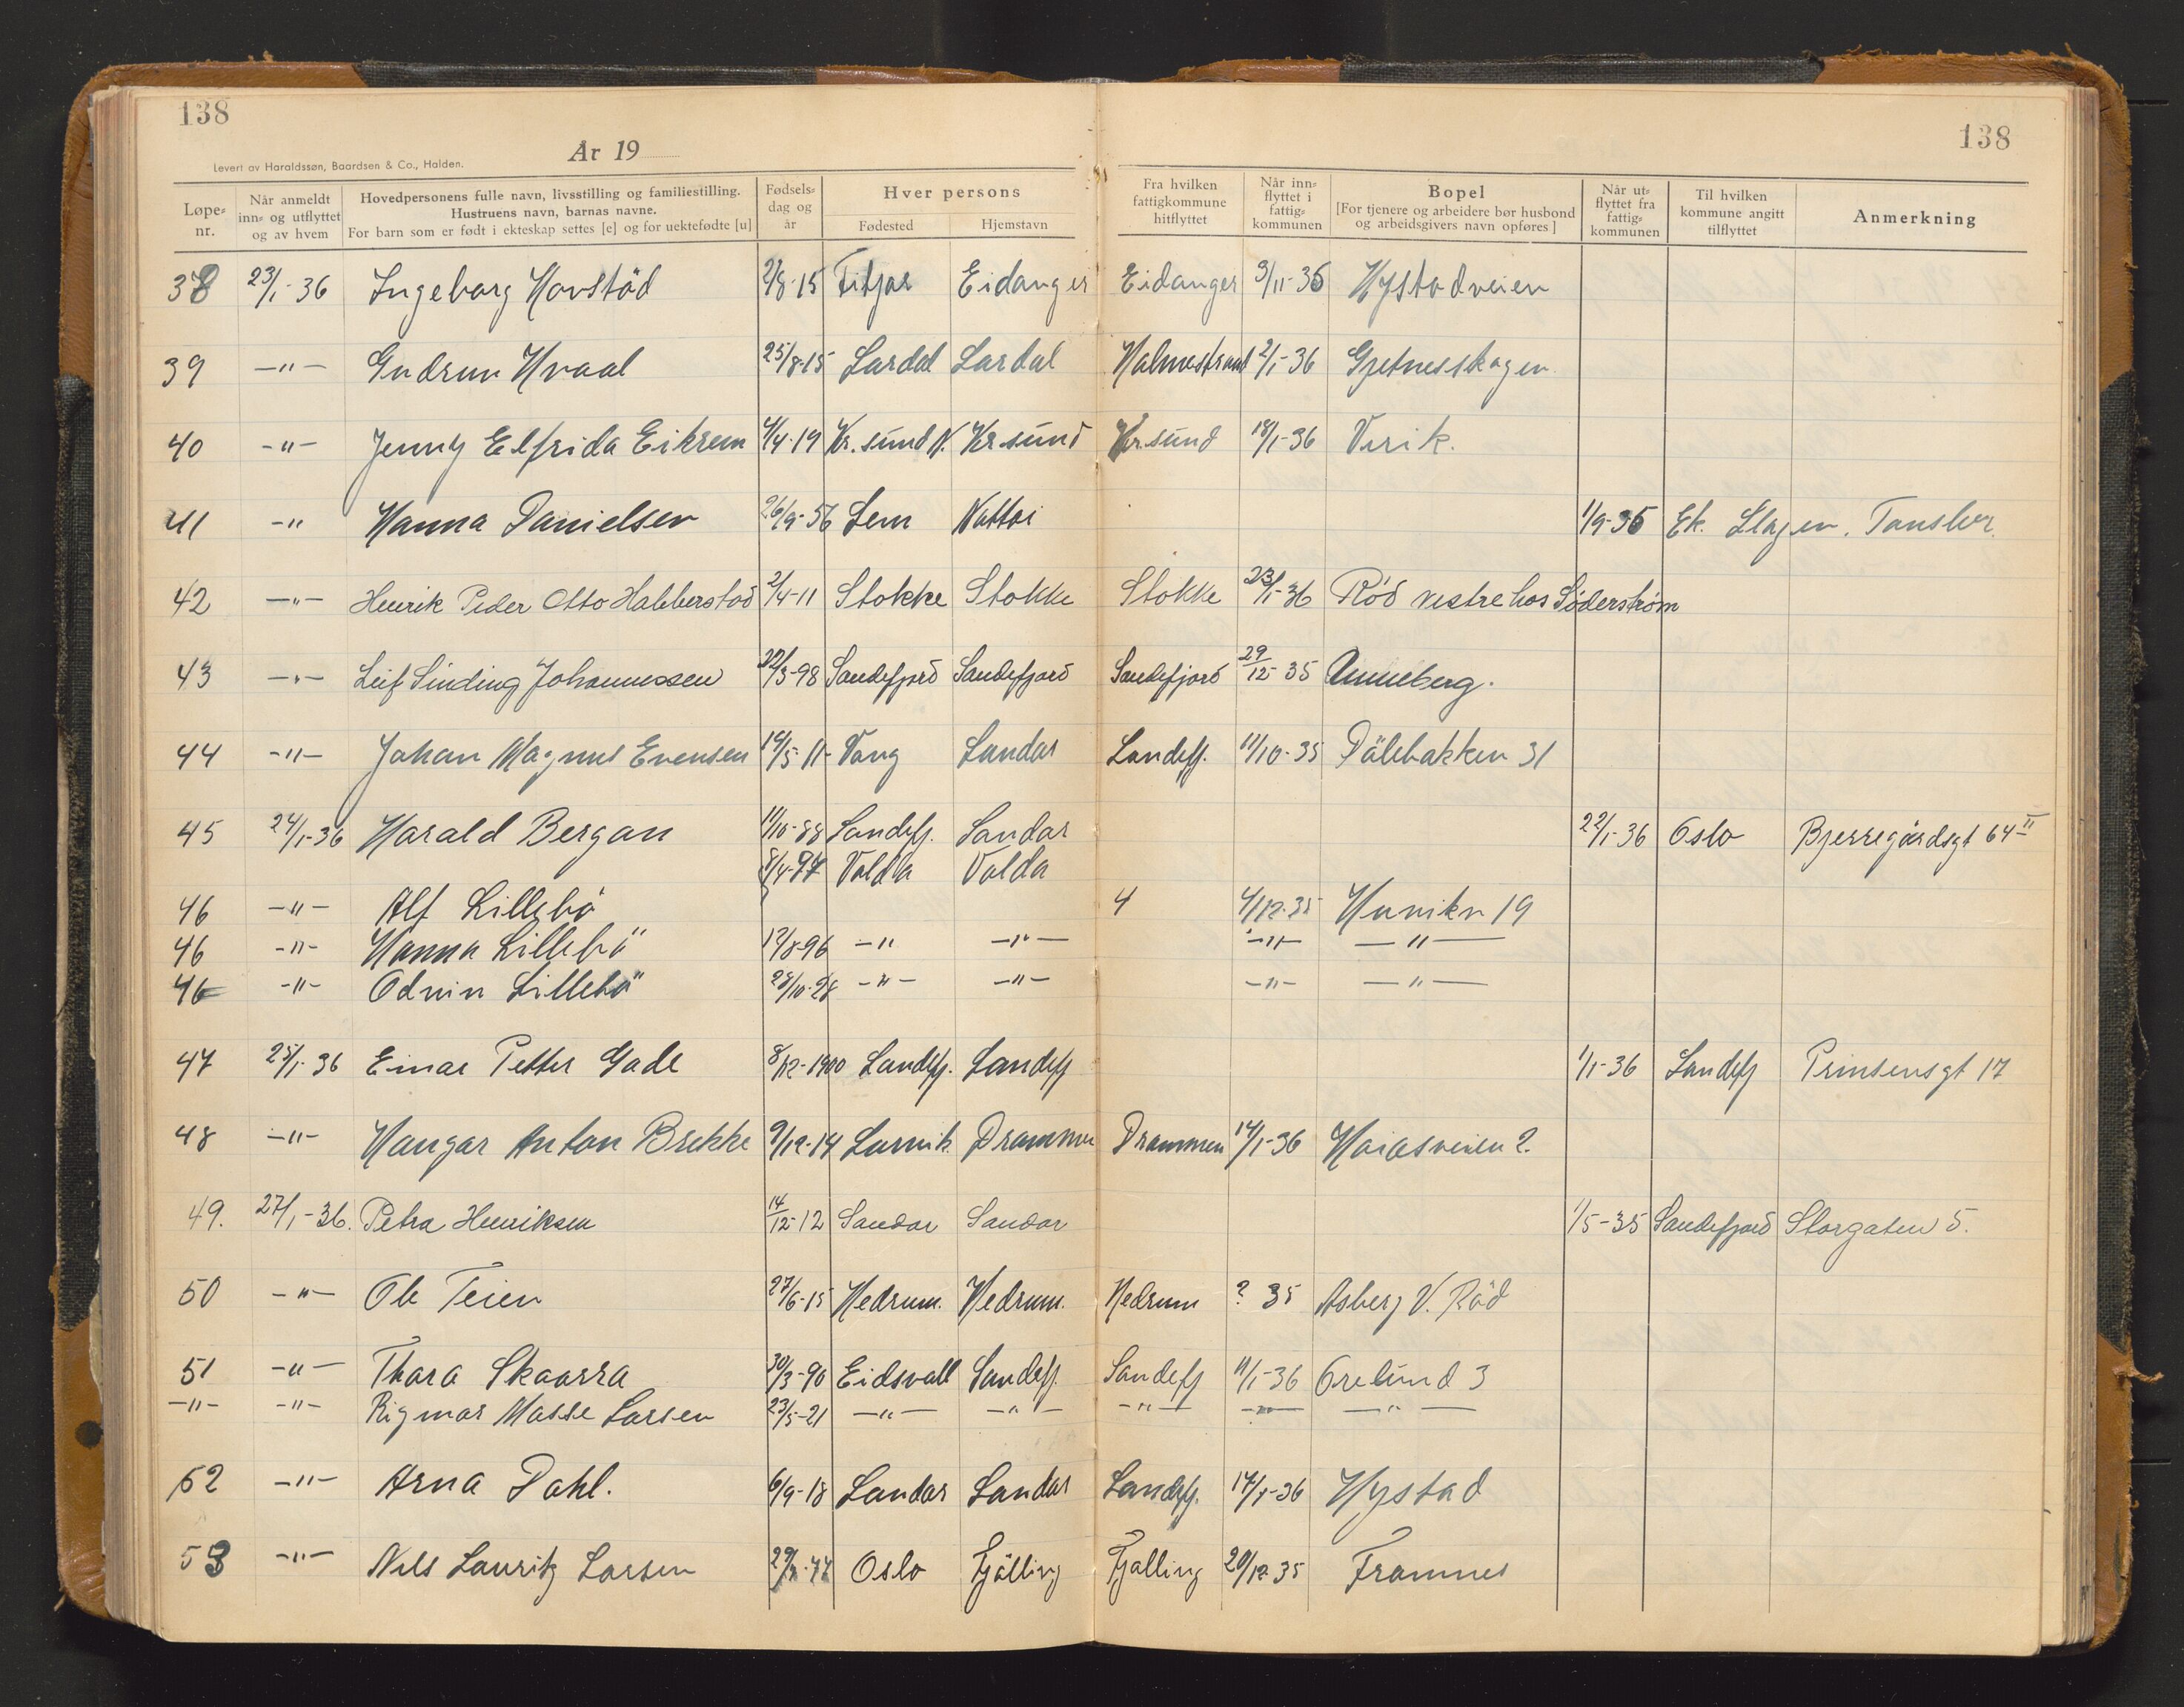 138
138
År 19
Levert av Haraldssøn, Baardsen & Co., Halden.
Løpe-nr. Når anmeldt inn- og utflyttet og av hvem Hovedpersonens fulle navn, livsstilling og familiestilling. Hustruens navn, barnas navne. For barn som er født i ekteskap settes [e] og for uektefødte [u] Fødsels-dag og år Hver persons Fødested Hjemstavn Fra hvilken fattigkommune hitflyttet Når inn-flyttet i fattig-kommunen Bopel [For tjenere og arbeidere bør husbond og arbeidsgivers navn opføres] Når ut-flyttet fra fattig-kommunen Til hvilken kommune angitt tilflyttet Anmerkning
38 23/1-36 Ingeborg Hovstöd 2/8-15 Fitjar Eidanger Eidanger 3/11-35 Hystadveien
39 -"- Gudrun Hvaal 25/8-15 Lardal Lardal Holmestrand 2/1-36 Gjetnesskogen
40 -"- Jenny Elfrida Eikrem 4/4-19 Kr.sund N. Kr.sund Kr.sund 18/1-36 Virik.
41 -" Hanna Danielsen 26/9-56 Sem 1/9-35 Ek. Slagen.
42 -"- Henrik Peder Otto Habberstad 2/4-11 Stokke Stokke Stokke 23/1-36 Rød vestre hos Söderstrøm
43 -"- Leif Sinding Johannessen 22/3-98 Sandefjord Sandefjord Sandefjord 29/12-35 Anneberg.
44 -"- Johan Magnus Evensen 14/5-11 Vang Sandar Sandefj. 11/10-35 Dölebakken 31
45 24/1-36 Harald Bergan 11/10-88 Sandefj. Sandar 22/1-36 Oslo Bjerregårdsgt 64 II
8/4-97 Volda Volda
46 -"- Alf Lillebö 4 4/12-35 19
46 -"- Hanna Lillebö 17/8-96 -" -"- -"- -"-
46 -"- Odvin Lillebö 28/10-28 -"- -"- -"- -"-
47 25/1-36 Einar Petter Gade 8/12-1900 Sandefj. Sandefj 1/1-36 Sandefj Prinsensgt 17
48 -"- Hangar Anton Brekke 9/12-14 Larvik Drammen Drammen 14/1-36 Haiasveien 2.
49. 27/1-36. Petra Henriksen 14/12-12 Sandar Sandar 1/5-35 Sandefjord Storgaten 5.
50 -"- Ole Teien 27/6-15 Hedrum. Hedrum. Hedrum ? 35 Asberg V. Röd
51 -"- Thora Skaarra 30/3-90 Eidsvall Sandefj. Sandefj 11/1-36 Orelund 3
-"- -"- Rigmor Masse Larsen 23/5-21 -"- -"- -"- -"- -"-
52 -"- Arna Dahl. 6/9-18 Sandar Sandar Sandefj. 17/1-36 Hystad
53 -"- Nils Lauritz Larsen Oslo Tjølling Tjølling 20/12-35 Framnes